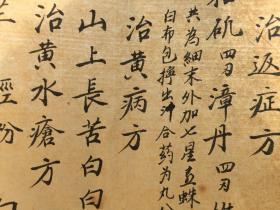 治返症方
和矾四刃漳丹四刃
共為細末外加七星𧈢蛛
白布包擰出汁合药為丸
治黄病方
山上長苦白白
治黄水瘡方